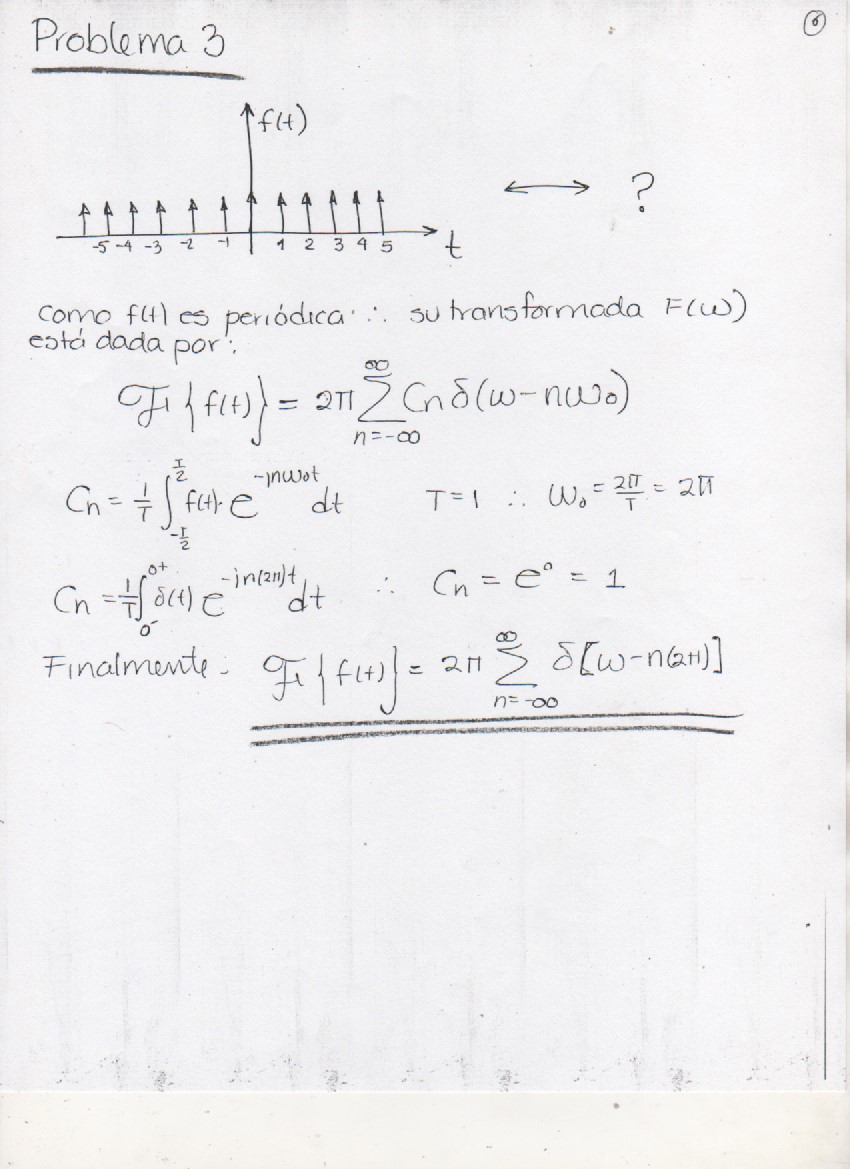 6
Problema 3
f(t)
⟷ ?
-5 -4 -3 -2 -1 1 2 3 4 5 t
Como f(t) es periódica ∴ su transformada F(ω)
está dada por:
ℱ{f(t)} = 2π ∑_{n=-∞}^{∞} Cn δ(ω-nω₀)
Cn = 1/T ∫_{-T/2}^{T/2} f(t)· e^{-jnω₀t} dt T=1 ∴ ω₀ = 2π/T = 2π
Cn = 1/T ∫_{0⁻}^{0⁺} δ(t) e^{-jn(2π)t} dt ∴ Cn = e⁰ = 1
Finalmente: ℱ{f(t)} = 2π ∑_{n=-∞}^{∞} δ[ω-n(2π)]